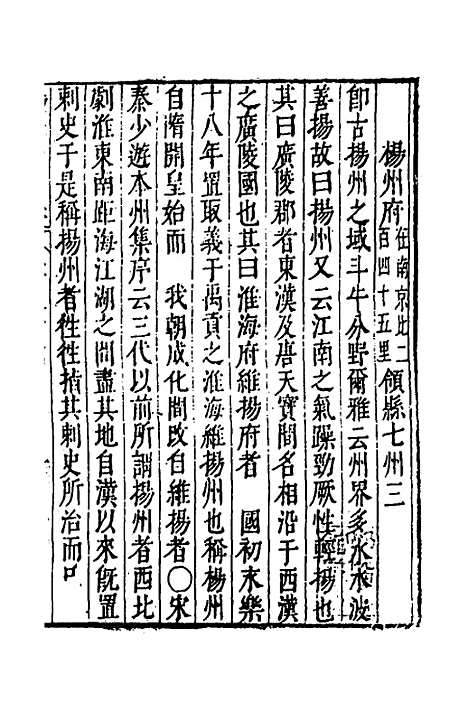 楊州府在南京北二百四十五里領縣七州三
即古楊州之域斗牛分野爾雅云州界多水水波
善揚故曰揚州又云江南之氣躁勁厥性輕揚也
其曰廣陵郡者東漢及唐天寶間名相沿于西漢
之廣陵國也其曰淮海府維揚府者 國初末樂
十八年置取義于禹貢之淮海維揚州也稱楊州
自隋開皇始而 我朝成化間改自維揚者〇宋
秦少遊本州集序云三代以前所謂揚州者西北
劇淮東南距海江湖之間盡其地自漢以來旣置
刺史于是稱揚州者徃徃指其刺史所治而口